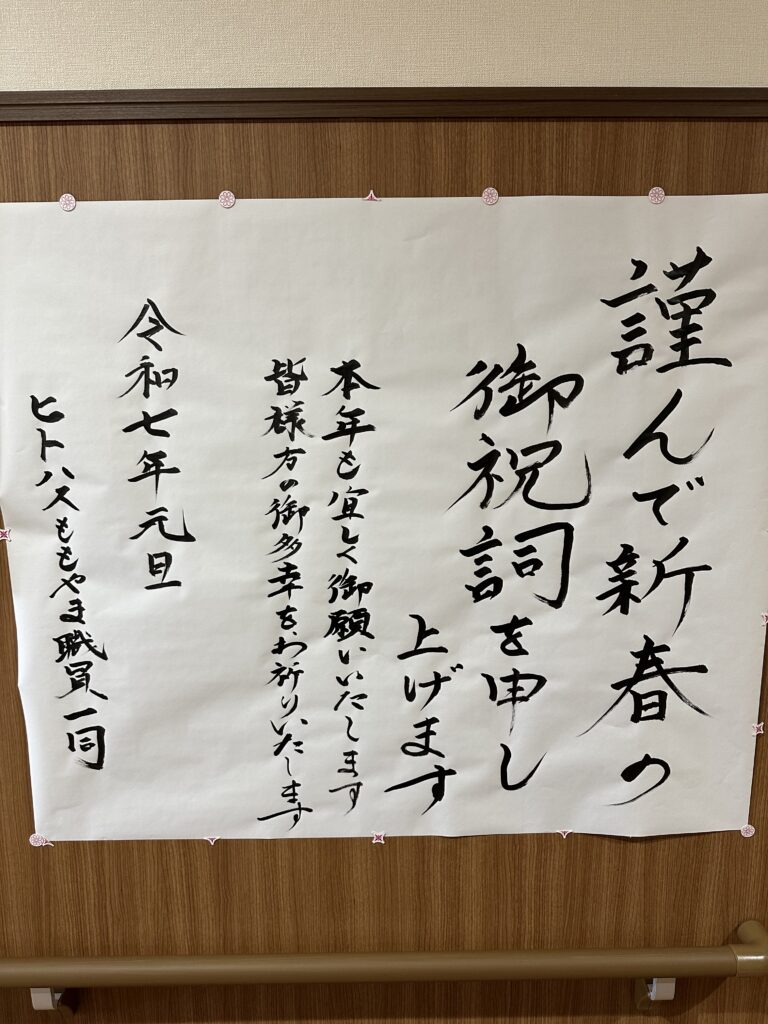 謹んで新春の
御祝詞を申し
上げます
本年も宜しく御願いいたします
皆様方の御多幸をお祈りいたします
令和七年元旦
ヒトハスももやま職員一同